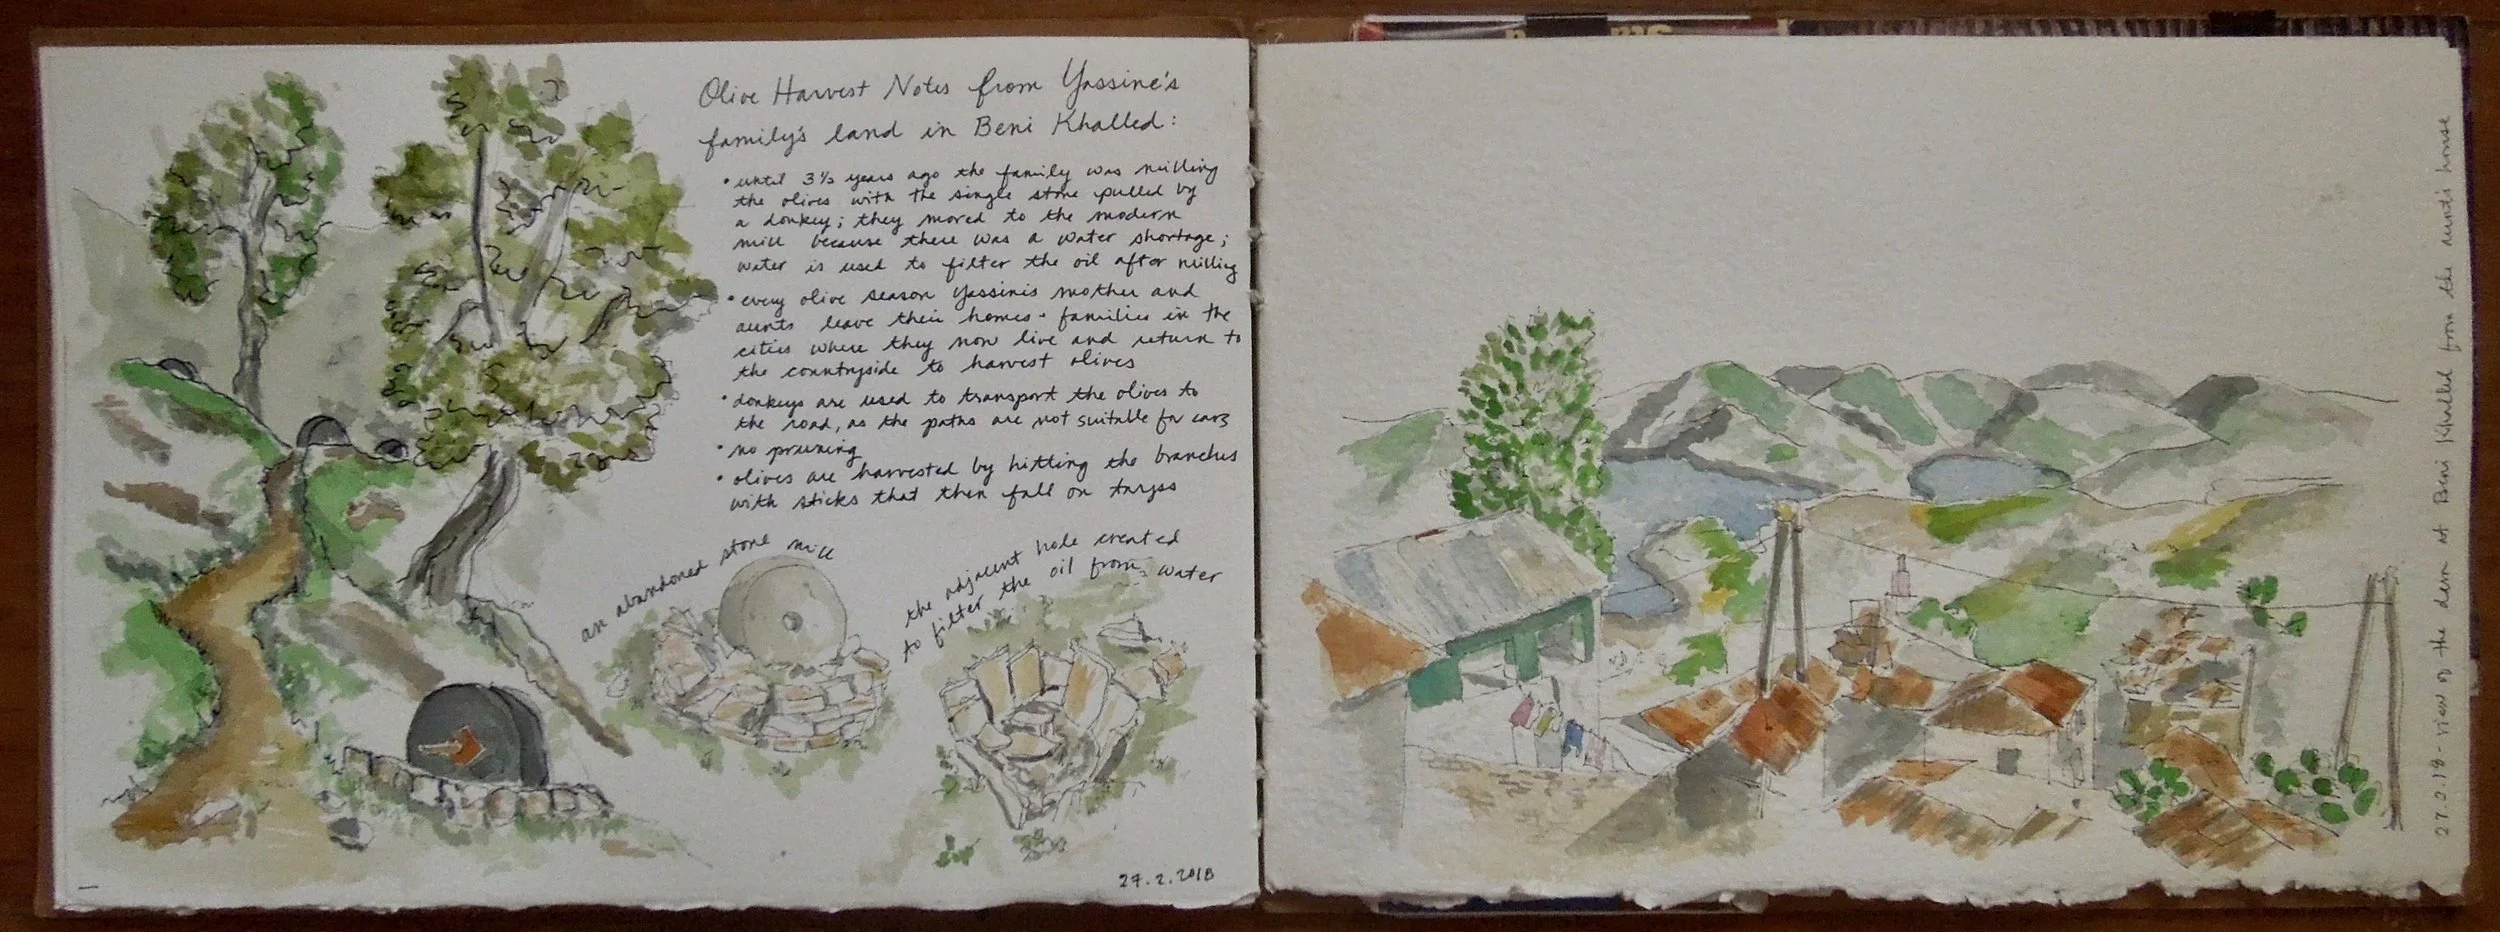 Olive Harvest Notes from Yassine's
family's land in Beni Khalled:
• until 3½ years ago the family was milling
the olives with the single stone pulled by
a donkey; they moved to the modern
mill because there was a water shortage;
water is used to filter the oil after milling
• every olive season Yassine's mother and
aunts leave their homes + families in the
cities where they now live and return to
the countryside to harvest olives
• donkeys are used to transport the olives to
the road, as the paths are not suitable for cars
• no pruning
• olives are harvested by hitting the branches
with sticks that then fall on tarps
an abandoned stone mill
the adjacent hole created
to filter the oil from water
27.2.2018
27.2.18 - view of the dam at Beni Khalled from the aunt's house